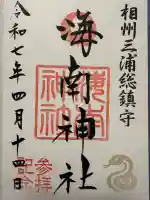 相州三浦総鎮守
海南神社
令和七年四月十四日
参拝
記念